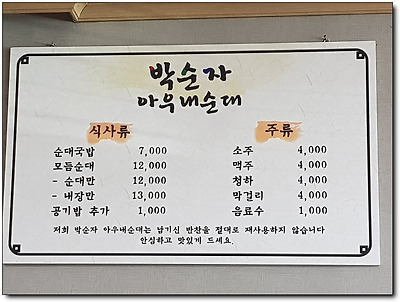 박순자
아우내순대
식사류
순대국밥 7,000
모듬순대 12,000
- 순대만 12,000
- 내장만 13,000
공기밥 추가 1,000
주류
소주 4,000
맥주 4,000
청하 4,000
막걸리 4,000
음료수 1,000
저희 박순자 아우내순대는 남기신 반찬을 절대로 재사용하지 않습니다
안심하고 맛있게 드세요.